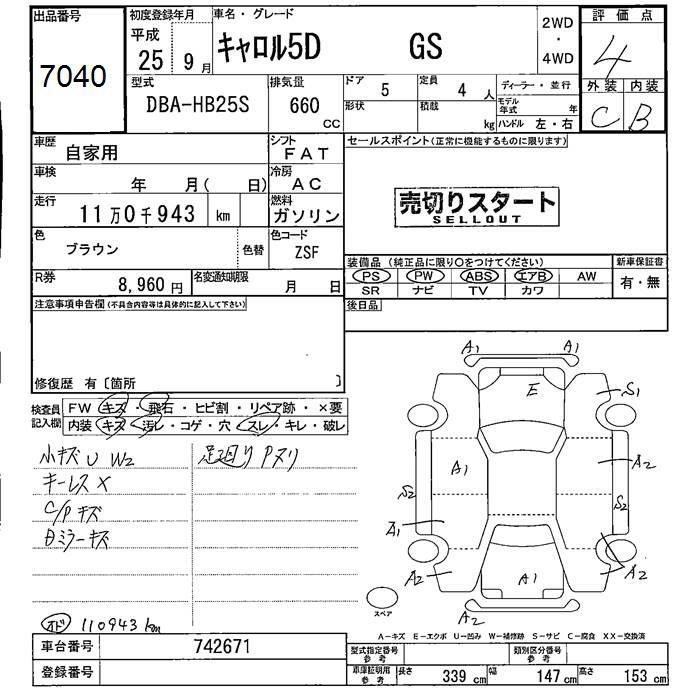 出品番号 7040
初度登録年月 平成 25 9月
車名・グレード キャロル5D GS
2WD・4WD
評価点 4
外装 内装
C B
型式 DBA-HB25S
排気量 660 CC
ドア 5
形状
定員 4人
積載 kg
ディーラー・並行
モデル年式 年
ハンドル 左・右
車歴 自家用
シフト FAT
車検 年 月( 日)
冷房 AC
走行 11万0千943 km
燃料 ガソリン
色 ブラウン 色替
色コード ZSF
R券 8,960円
名変通知期限 月 日
セールスポイント(正常に機能するものに限ります)
売切りスタート
SELLOUT
装備品(純正品に限り○をつけてください)
PS PW ABS エアB AW
SR ナビ TV カワ
新車保証書
有・無
後日品
注意事項申告欄(不具合内容等は具体的に記入して下さい)
修復歴 有〔箇所 〕
検査員記入欄
FW キズ・飛石・ヒビ割・リペア跡・×要
内装 キズ・汚レ・コゲ・穴・スレ・キレ・破レ
小キズ U W2
足廻り Pヌリ
キーレス X
C/P キズ
Bミラーキズ
オド 110943km
A1 A1
E
S1
A1
A2
S2
S2
A1
A2
A1
A2
A2
スペア
A-キズ E-エクボ U-凹み W-補修跡 S-サビ C-腐食 XX-交換済
車台番号 742671
登録番号
型式指定番号 参考
類別区分番号 参考
車庫証明用 参考
長さ 339 cm 幅 147 cm 高さ 153 cm